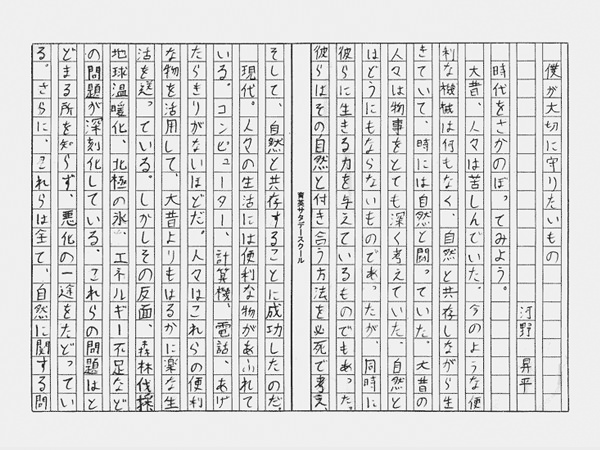 僕が大切に守りたいもの
河野 昇平
時代をさかのぼってみよう。
大昔、人々は苦しんでいた。今のような便
利な機械は何もなく、自然と共存しながら生
きていて、時には自然と闘っていた。大昔の
人々は物事をとても深く考えていた。自然と
はどうにもならないものであったが、同時に
彼らに生きる力を与えているものでもあった。
彼らはその自然と付き合う方法を必死で考え、
育英サタデースクール
そして、自然と共存することに成功したのだ。
現代。人々の生活には便利な物があふれて
いる。コンピューター、計算機、電話、あげ
たらきりがないほどだ。人々はこれらの便利
な物を活用して、大昔よりもはるかに楽な生
活を送っている。しかしその反面、森林伐採
地球温暖化、北極の氷、エネルギー不足など
の問題が深刻化している。これらの問題はと
どまる所を知らず、悪化の一途をたどってい
る。さらに、これらは全て、自然に関する問